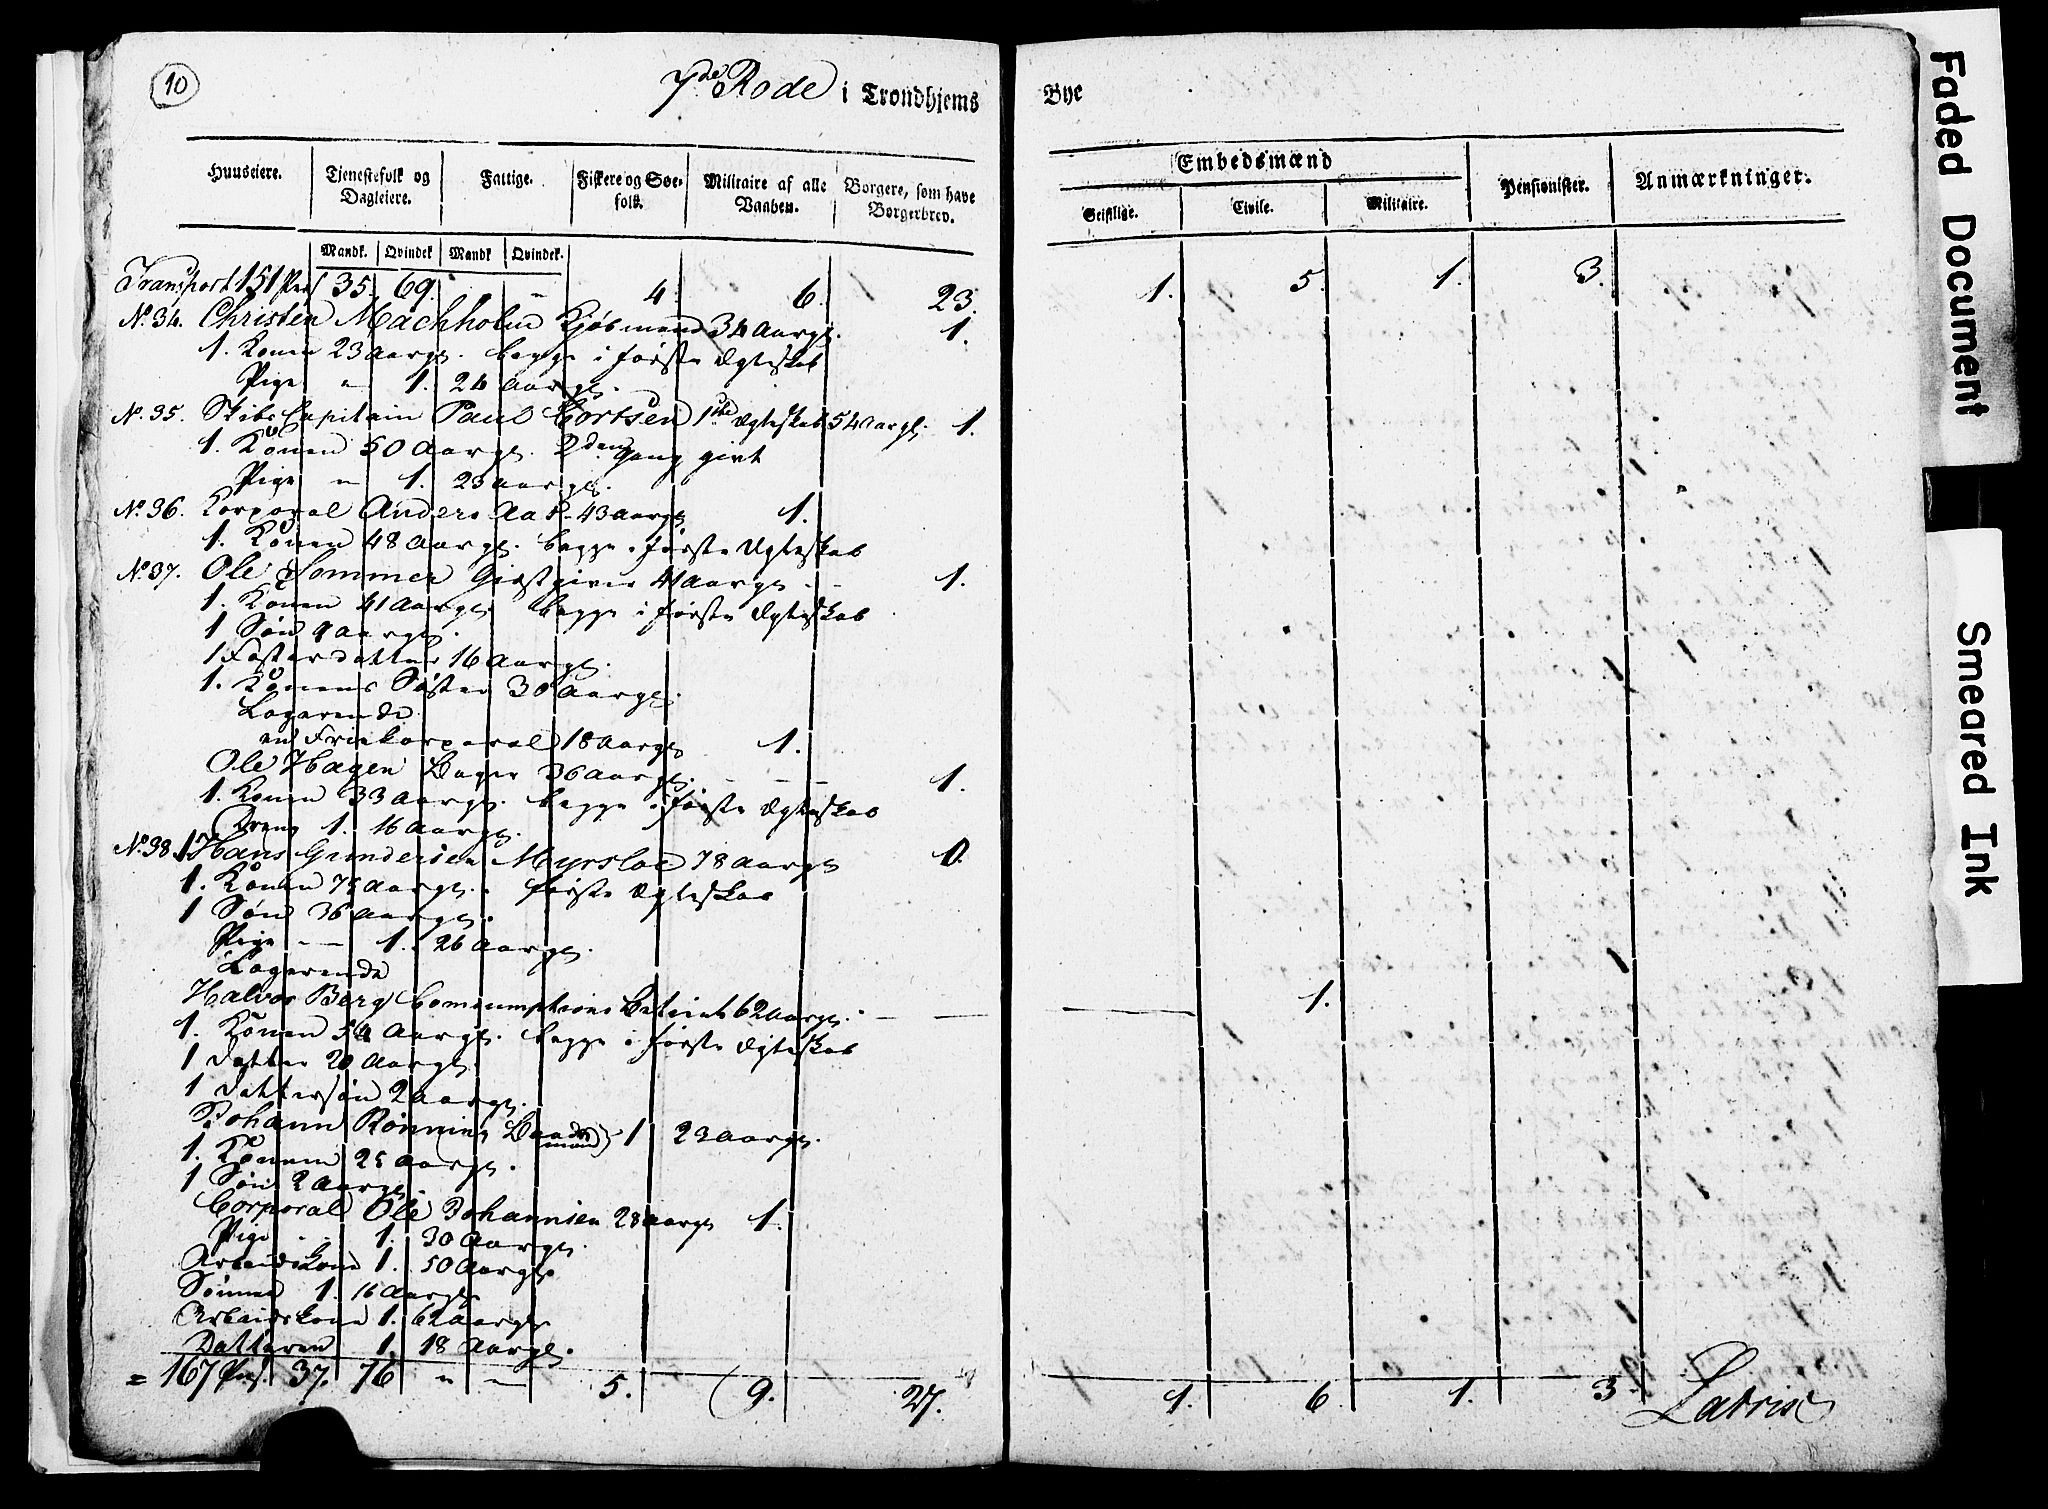 10
7de Rode i Trondhjems Bye
Huuseiere. Tjenestefolk og Dagleiere. Fattige. Fiskere og Søefolk. Militaire af alle Vaaben. Borgere, som have Borgerbrev. Embedsmænd Pensionister. Anmærkninger.
Geistlige. Civile. Militaire.
Mandk. Qvindek Mandk Qvindek.
Transport 151 Pers 35. 69. 4. 6. 23. 1. 5. 1. 3.
No. 34. Christen Machholm Kjøbmand 34 Aargl. 1.
1. Konen 23 Aargl. begge i første Ægteskab
Pige 1. 24 Aargl.
No. 35. Skibs Capitain Paul Cortsen 1ste Ægteskab 54 Aargl. 1.
1. Konen 50 Aargl. 2den Gang givt
Pige 1. 23 Aargl.
No. 36. Korporal Anders Aas 43 Aargl 1.
1. Konen 48 Aargl. begge i første Ægteskab
No. 37. Ole Sommer Giestgiver 41 Aargl 1.
1. Konen 41 Aargl. begge i første Ægteskab
1 Søn 9 Aargl.
1 Fosterdatter 16 Aargl.
1. Konens Søster 30 Aargl.
Logerende
en Friekorporal 18 Aargl 1.
Ole Hagen Bager 36 Aargl. 1.
1. Konen 33 Aargl. begge i første Ægteskab
Dreng 1. 16 Aargl.
No. 38. 1 Hans Gundersen Myrsloe 78 Aargl
1. Konen 75 Aargl. første Ægteskab
1 Søn 36 Aargl.
Pige 1. 26 Aargl.
Logerende
Halvor Berg Comsumptions Betient 62 Aargl. 1.
1. Konen 54 Aargl. begge i første Ægteskab
1 Datter 20 Aargl.
1 Dattersøn 2 Aargl.
Johann Rønning (Baadsmand) 1 23 Aargl.
1. Konen 25 Aargl.
1 Søn 2 Aargl.
Corporal Ole Johannsen 28 Aargl 1.
Pige 1. 30 Aargl.
Arbeidskone 1. 50 Aargl.
Sønnen 1. 16 Aargl
Arbeidskone 1. 62 Aargl
Datteren 1. 18 Aargl.
= 167 Pers. 37. 76 5. 9. 27. 1. 6. 1. 3
Faded Document
Smeared Ink